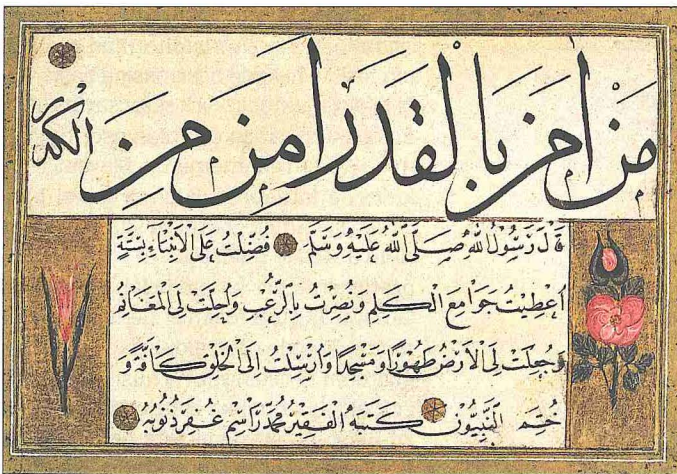 مَنْ اٰمَنَ بِالْقَدَرِ اَمِنَ مِنَ الْكَدَرِ
قَالَ رَسُولُ اللهِ صَلَّى اللهُ عَلَيْهِ وَسَلَّمَ فُضِّلْتُ عَلَى الْاَنْبِيَاءِ بِسِتَّةٍ
اُعْطِيتُ جَوَامِعَ الْكَلِمِ وَنُصِرْتُ بِالرُّعْبِ وَاُحِلَّتْ لِىَ الْمَغَانِمُ
وَجُعِلَتْ لِىَ الْاَرْضُ طَهُورًا وَمَسْجِدًا وَاُرْسِلْتُ اِلَى الْخَلْقِ كَافَّةً وَ
خُتِمَ النَّبِيُّونَ كَتَبَهُ الْفَقِيرُ مُحَمَّد رَاسِم غُفِرَ ذُنُوبُهُ